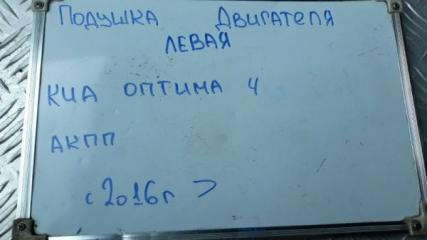 Подушка Двигателя
ЛЕВАЯ
КИА ОПТИМА 4
АКПП
с 2016г >